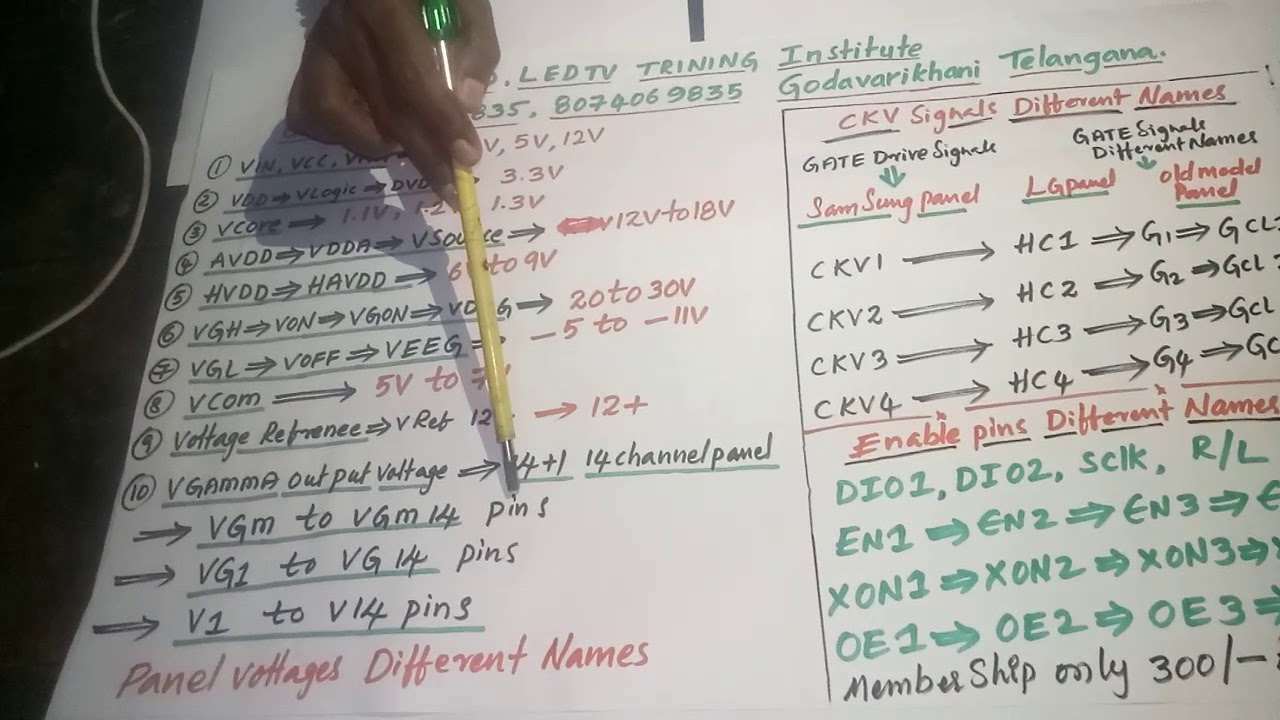 LEDTV TRINING Institute
835, 8074069835 Godavarikhani Telangana.
① VIN, VCC, V, 5V, 12V
② VDD⇒VLogic⇒DVD 3.3V
③ Vcore → 1.1V, 1.2 1.3V
④ AVDD⇒VDDA⇒VSource⇒ 12Vto18V
⑤ HVDD⇒HAVDD⇒ 6 to 9V
⑥ VGH⇒VON⇒VGON⇒VD G→ 20to30V
⑦ VGL⇒VOFF⇒VEEG -5 to -11V
⑧ VCom ⇒ 5V to 7V
⑨ Voltage Refrenee⇒VRef 12 → 12+
⑩ VGAMMA output voltage ⇒14+1 14channelpanel
⇒ VGm to VGm14 pins
⇒ VG1 to VG14 pins
⇒ V1 to V14 pins
Panel voltages Different Names
CKV Signals Different Names
GATE Drive Signals
GATE Signals
Different Names
SamSung panel LGpanel old model
Panel
CKV1 → HC1 ⇒ G1⇒ GCL
CKV2 → HC2 ⇒ G2⇒GCL
CKV3 → HC3 ⇒ G3⇒GCL
CKV4 → HC4 ⇒ G4⇒GC
Enable pins Different Names
DIO1, DIO2, SClk, R/L
EN1 ⇒ EN2 ⇒ EN3 ⇒ E
XON1⇒XON2⇒XON3⇒
OE1⇒ OE2⇒ OE3⇒
MemberShip only 300/-